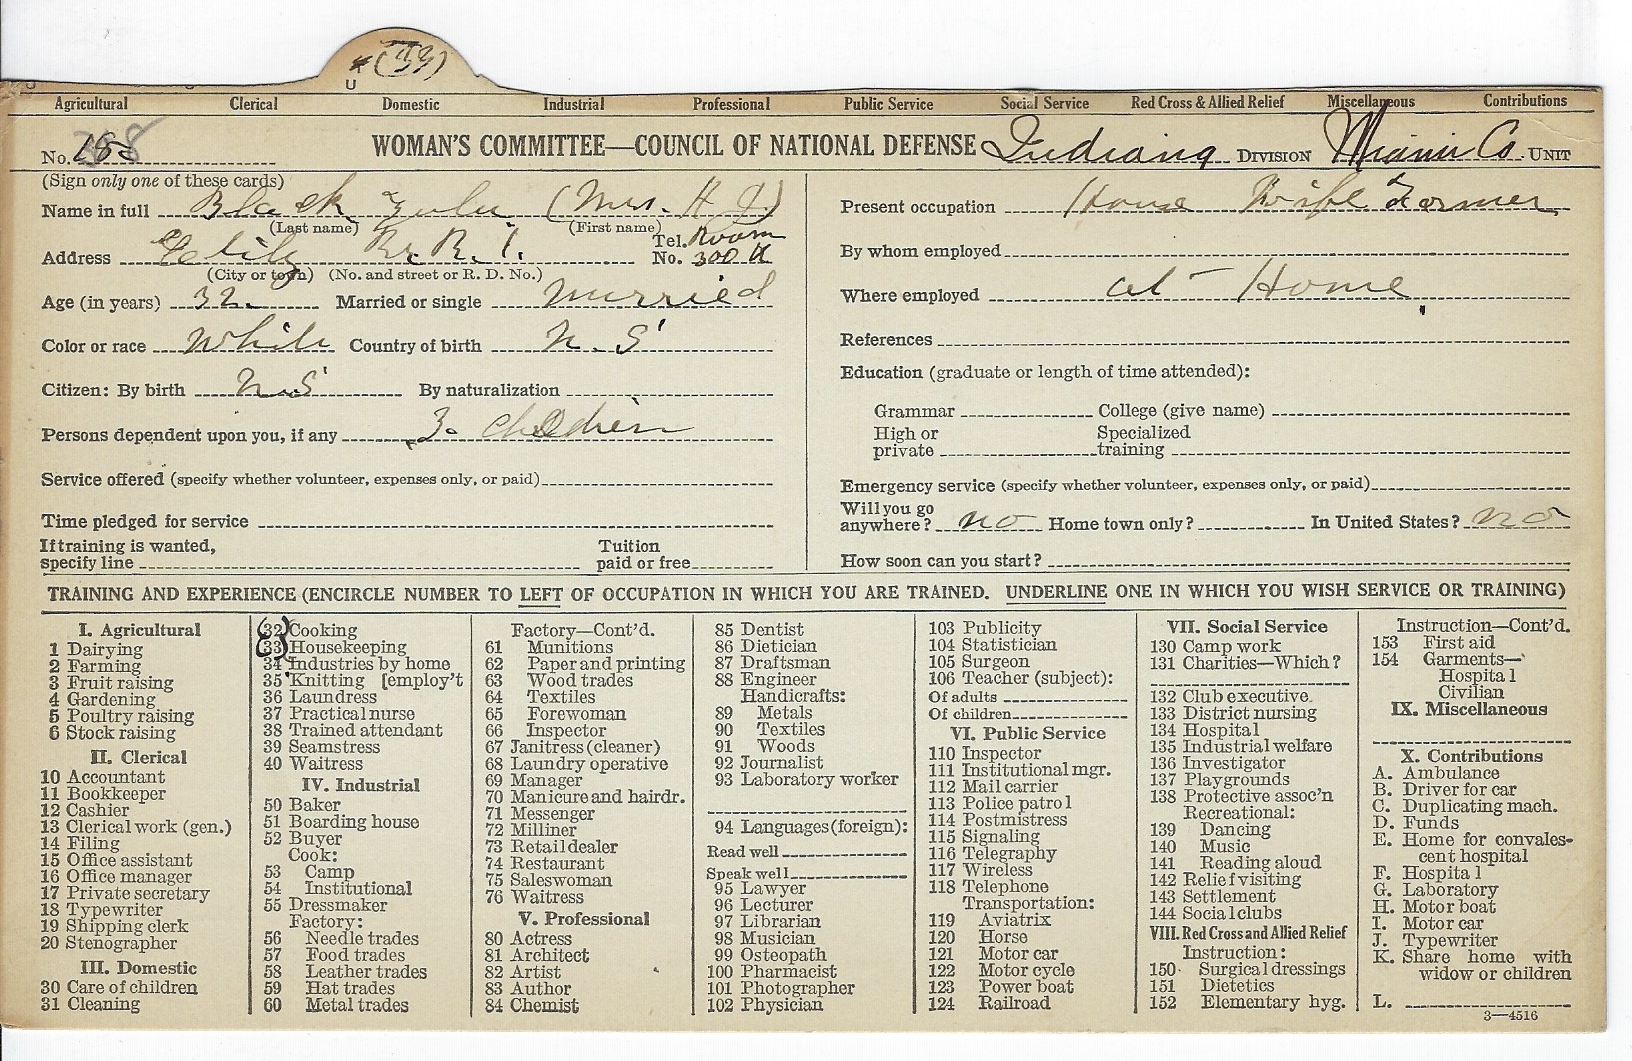 (33)
U
Agricultural Clerical Domestic Industrial Professional Public Service Social Service Red Cross & Allied Relief Miscellaneous Contributions
No. WOMAN'S COMMITTEE—COUNCIL OF NATIONAL DEFENSE Indiana DIVISION Miami Co. UNIT
(Sign only one of these cards)
Name in full Black Zula (Mrs. H J)
(Last name) (First name)
Address R. R. 1. Tel. No. 300 Room
(City or town) (No. and street or R. D. No.)
Age (in years) 32. Married or single Married
Color or race White Country of birth U. S
Citizen: By birth U.S By naturalization
Persons dependent upon you, if any 3. Children
Service offered (specify whether volunteer, expenses only, or paid)
Time pledged for service
If training is wanted, specify line Tuition paid or free
Present occupation House Wife Farmer
By whom employed
Where employed at - Home
References
Education (graduate or length of time attended):
Grammar College (give name)
High or private Specialized training
Emergency service (specify whether volunteer, expenses only, or paid)
Will you go anywhere? no Home town only? In United States? no
How soon can you start?
TRAINING AND EXPERIENCE (ENCIRCLE NUMBER TO LEFT OF OCCUPATION IN WHICH YOU ARE TRAINED. UNDERLINE ONE IN WHICH YOU WISH SERVICE OR TRAINING)
I. Agricultural
1 Dairying
2 Farming
3 Fruit raising
4 Gardening
5 Poultry raising
6 Stock raising
II. Clerical
10 Accountant
11 Bookkeeper
12 Cashier
13 Clerical work (gen.)
14 Filing
15 Office assistant
16 Office manager
17 Private secretary
18 Typewriter
19 Shipping clerk
20 Stenographer
III. Domestic
30 Care of children
31 Cleaning
32 Cooking
33 Housekeeping
34 Industries by home
35 Knitting [employ't
36 Laundress
37 Practical nurse
38 Trained attendant
39 Seamstress
40 Waitress
IV. Industrial
50 Baker
51 Boarding house
52 Buyer
Cook:
53 Camp
54 Institutional
55 Dressmaker
Factory:
56 Needle trades
57 Food trades
58 Leather trades
59 Hat trades
60 Metal trades
Factory—Cont'd.
61 Munitions
62 Paper and printing
63 Wood trades
64 Textiles
65 Forewoman
66 Inspector
67 Janitress (cleaner)
68 Laundry operative
69 Manager
70 Manicure and hairdr.
71 Messenger
72 Milliner
73 Retail dealer
74 Restaurant
75 Saleswoman
76 Waitress
V. Professional
80 Actress
81 Architect
82 Artist
83 Author
84 Chemist
85 Dentist
86 Dietician
87 Draftsman
88 Engineer
Handicrafts:
89 Metals
90 Textiles
91 Woods
92 Journalist
93 Laboratory worker
94 Languages (foreign):
Read well
Speak well
95 Lawyer
96 Lecturer
97 Librarian
98 Musician
99 Osteopath
100 Pharmacist
101 Photographer
102 Physician
103 Publicity
104 Statistician
105 Surgeon
106 Teacher (subject):
Of adults
Of children
VI. Public Service
110 Inspector
111 Institutional mgr.
112 Mail carrier
113 Police patrol
114 Postmistress
115 Signaling
116 Telegraphy
117 Wireless
118 Telephone
Transportation:
119 Aviatrix
120 Horse
121 Motor car
122 Motor cycle
123 Power boat
124 Railroad
VII. Social Service
130 Camp work
131 Charities—Which?
132 Club executive
133 District nursing
134 Hospital
135 Industrial welfare
136 Investigator
137 Playgrounds
138 Protective assoc'n
Recreational:
139 Dancing
140 Music
141 Reading aloud
142 Relief visiting
143 Settlement
144 Social clubs
VIII. Red Cross and Allied Relief
Instruction:
150 Surgical dressings
151 Dietetics
152 Elementary hyg.
Instruction—Cont'd.
153 First aid
154 Garments—
Hospital
Civilian
IX. Miscellaneous
X. Contributions
A. Ambulance
B. Driver for car
C. Duplicating mach.
D. Funds
E. Home for convales-
cent hospital
F. Hospital
G. Laboratory
H. Motor boat
I. Motor car
J. Typewriter
K. Share home with
widow or children
L.
3—4516